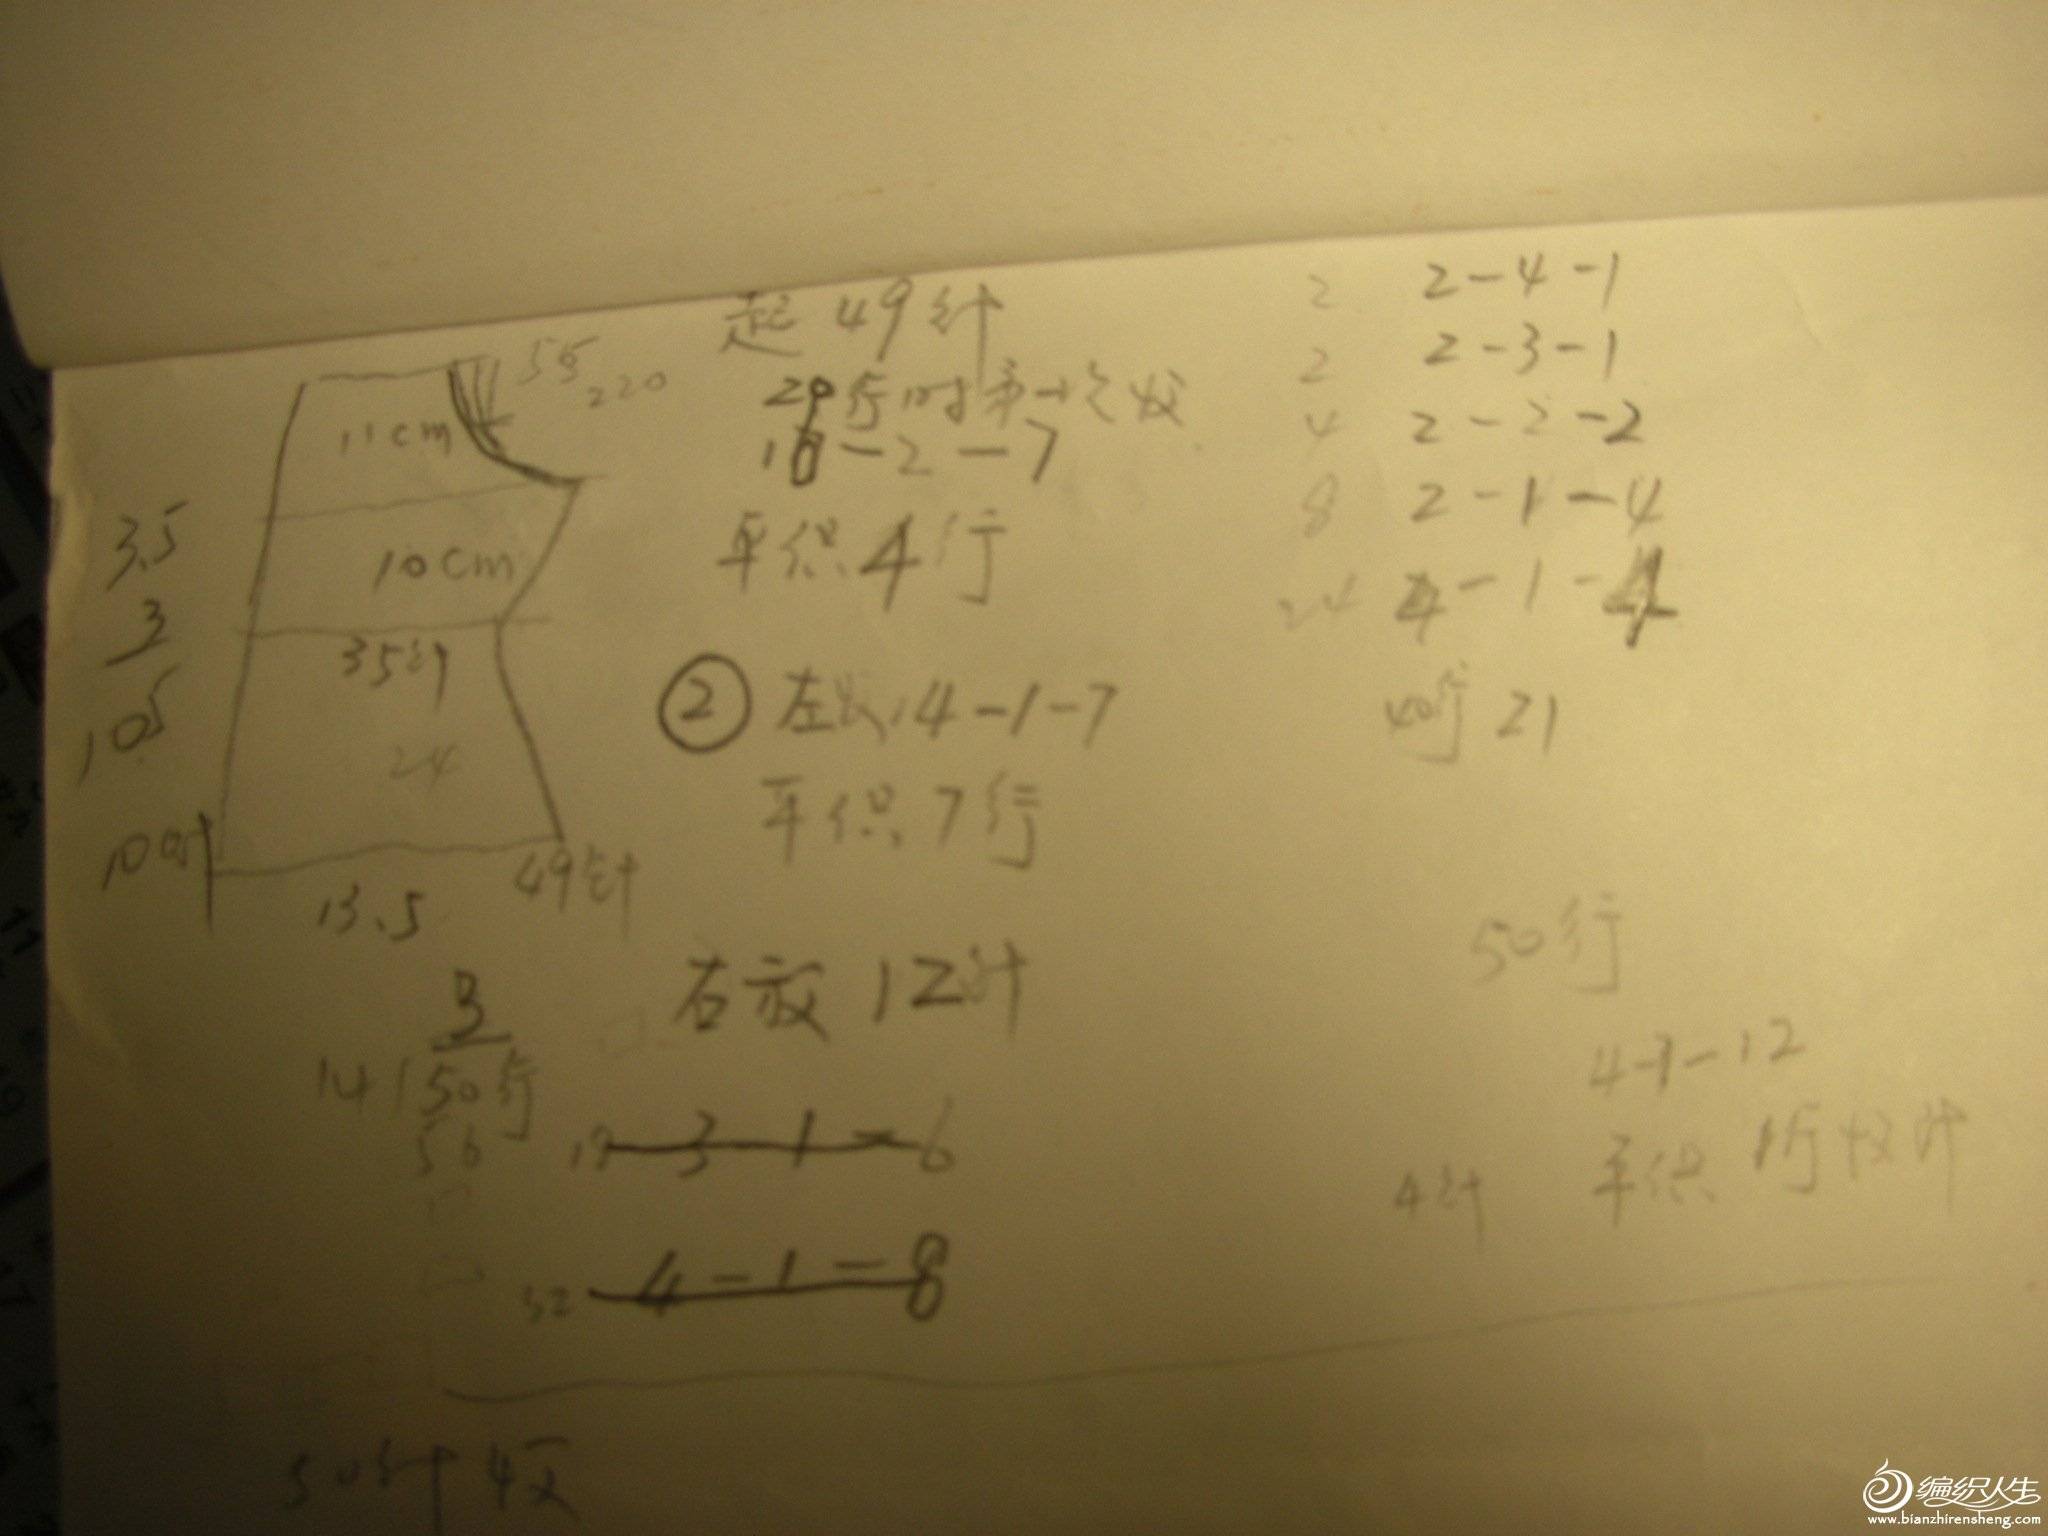 起 49 针
20行时第一次收
18-2-7
平织 4 行
55
220
11cm
10cm
35针
24
49针
13.5
3.5
3
10.5
② 左收 14-1-7
平织 7 行
右放 12针
3
14 50行
56
3 1-6
32 4-1-8
2 2-4-1
2 2-3-1
4 2-2-2
8 2-1-4
24 4-1-4
40行 21
50行
4-1-12
平织 1行收针
4针
50针
编织人生
www.bianzhirensheng.com